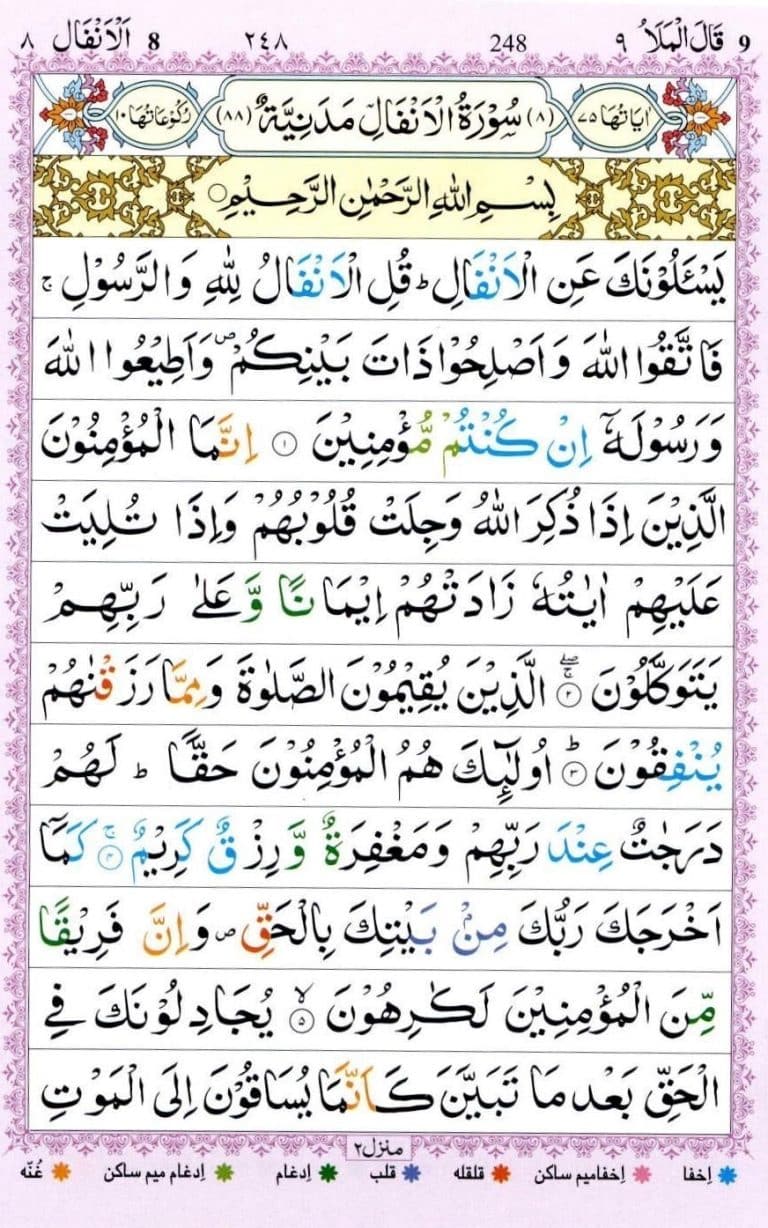 9 قَالَ الْمَلَاُ ٩ 248 ٢٤٨ 8 اَلْاَنْفَال ٨
اٰيَاتُهَا ٧٥ (٨) سُوْرَةُ الْاَنْفَالِ مَدَنِيَّةٌ (٨٨) رُكُوْعَاتُهَا ١٠
بِسْمِ اللّٰهِ الرَّحْمٰنِ الرَّحِيْمِ ○
يَسْـَٔلُوْنَكَ عَنِ الْاَنْفَالِ ؕ قُلِ الْاَنْفَالُ لِلّٰهِ وَالرَّسُوْلِ ۚ
فَاتَّقُوا اللّٰهَ وَاَصْلِحُوْا ذَاتَ بَيْنِكُمْ ۪ وَاَطِيْعُوا اللّٰهَ
وَرَسُوْلَهٗۤ اِنْ كُنْتُمْ مُّؤْمِنِيْنَ ۝١ اِنَّمَا الْمُؤْمِنُوْنَ
الَّذِيْنَ اِذَا ذُكِرَ اللّٰهُ وَجِلَتْ قُلُوْبُهُمْ وَاِذَا تُلِيَتْ
عَلَيْهِمْ اٰيٰتُهٗ زَادَتْهُمْ اِيْمَانًا وَّعَلٰى رَبِّهِمْ
يَتَوَكَّلُوْنَ ۝٢ۚۖ الَّذِيْنَ يُقِيْمُوْنَ الصَّلٰوةَ وَمِمَّا رَزَقْنٰهُمْ
يُنْفِقُوْنَ ۝٣ؕ اُولٰٓئِكَ هُمُ الْمُؤْمِنُوْنَ حَقًّا ؕ لَهُمْ
دَرَجٰتٌ عِنْدَ رَبِّهِمْ وَمَغْفِرَةٌ وَّرِزْقٌ كَرِيْمٌ ۝٤ۚ كَمَاۤ
اَخْرَجَكَ رَبُّكَ مِنْۢ بَيْتِكَ بِالْحَقِّ ۪ وَاِنَّ فَرِيْقًا
مِّنَ الْمُؤْمِنِيْنَ لَكٰرِهُوْنَ ۝٥ۙ يُجَادِلُوْنَكَ فِي
الْحَقِّ بَعْدَ مَا تَبَيَّنَ كَاَنَّمَا يُسَاقُوْنَ اِلَى الْمَوْتِ
منزل ٢
اِخفا اِخفامیم ساکن قلقله قلب اِدغام اِدغام میم ساکن غُنّه